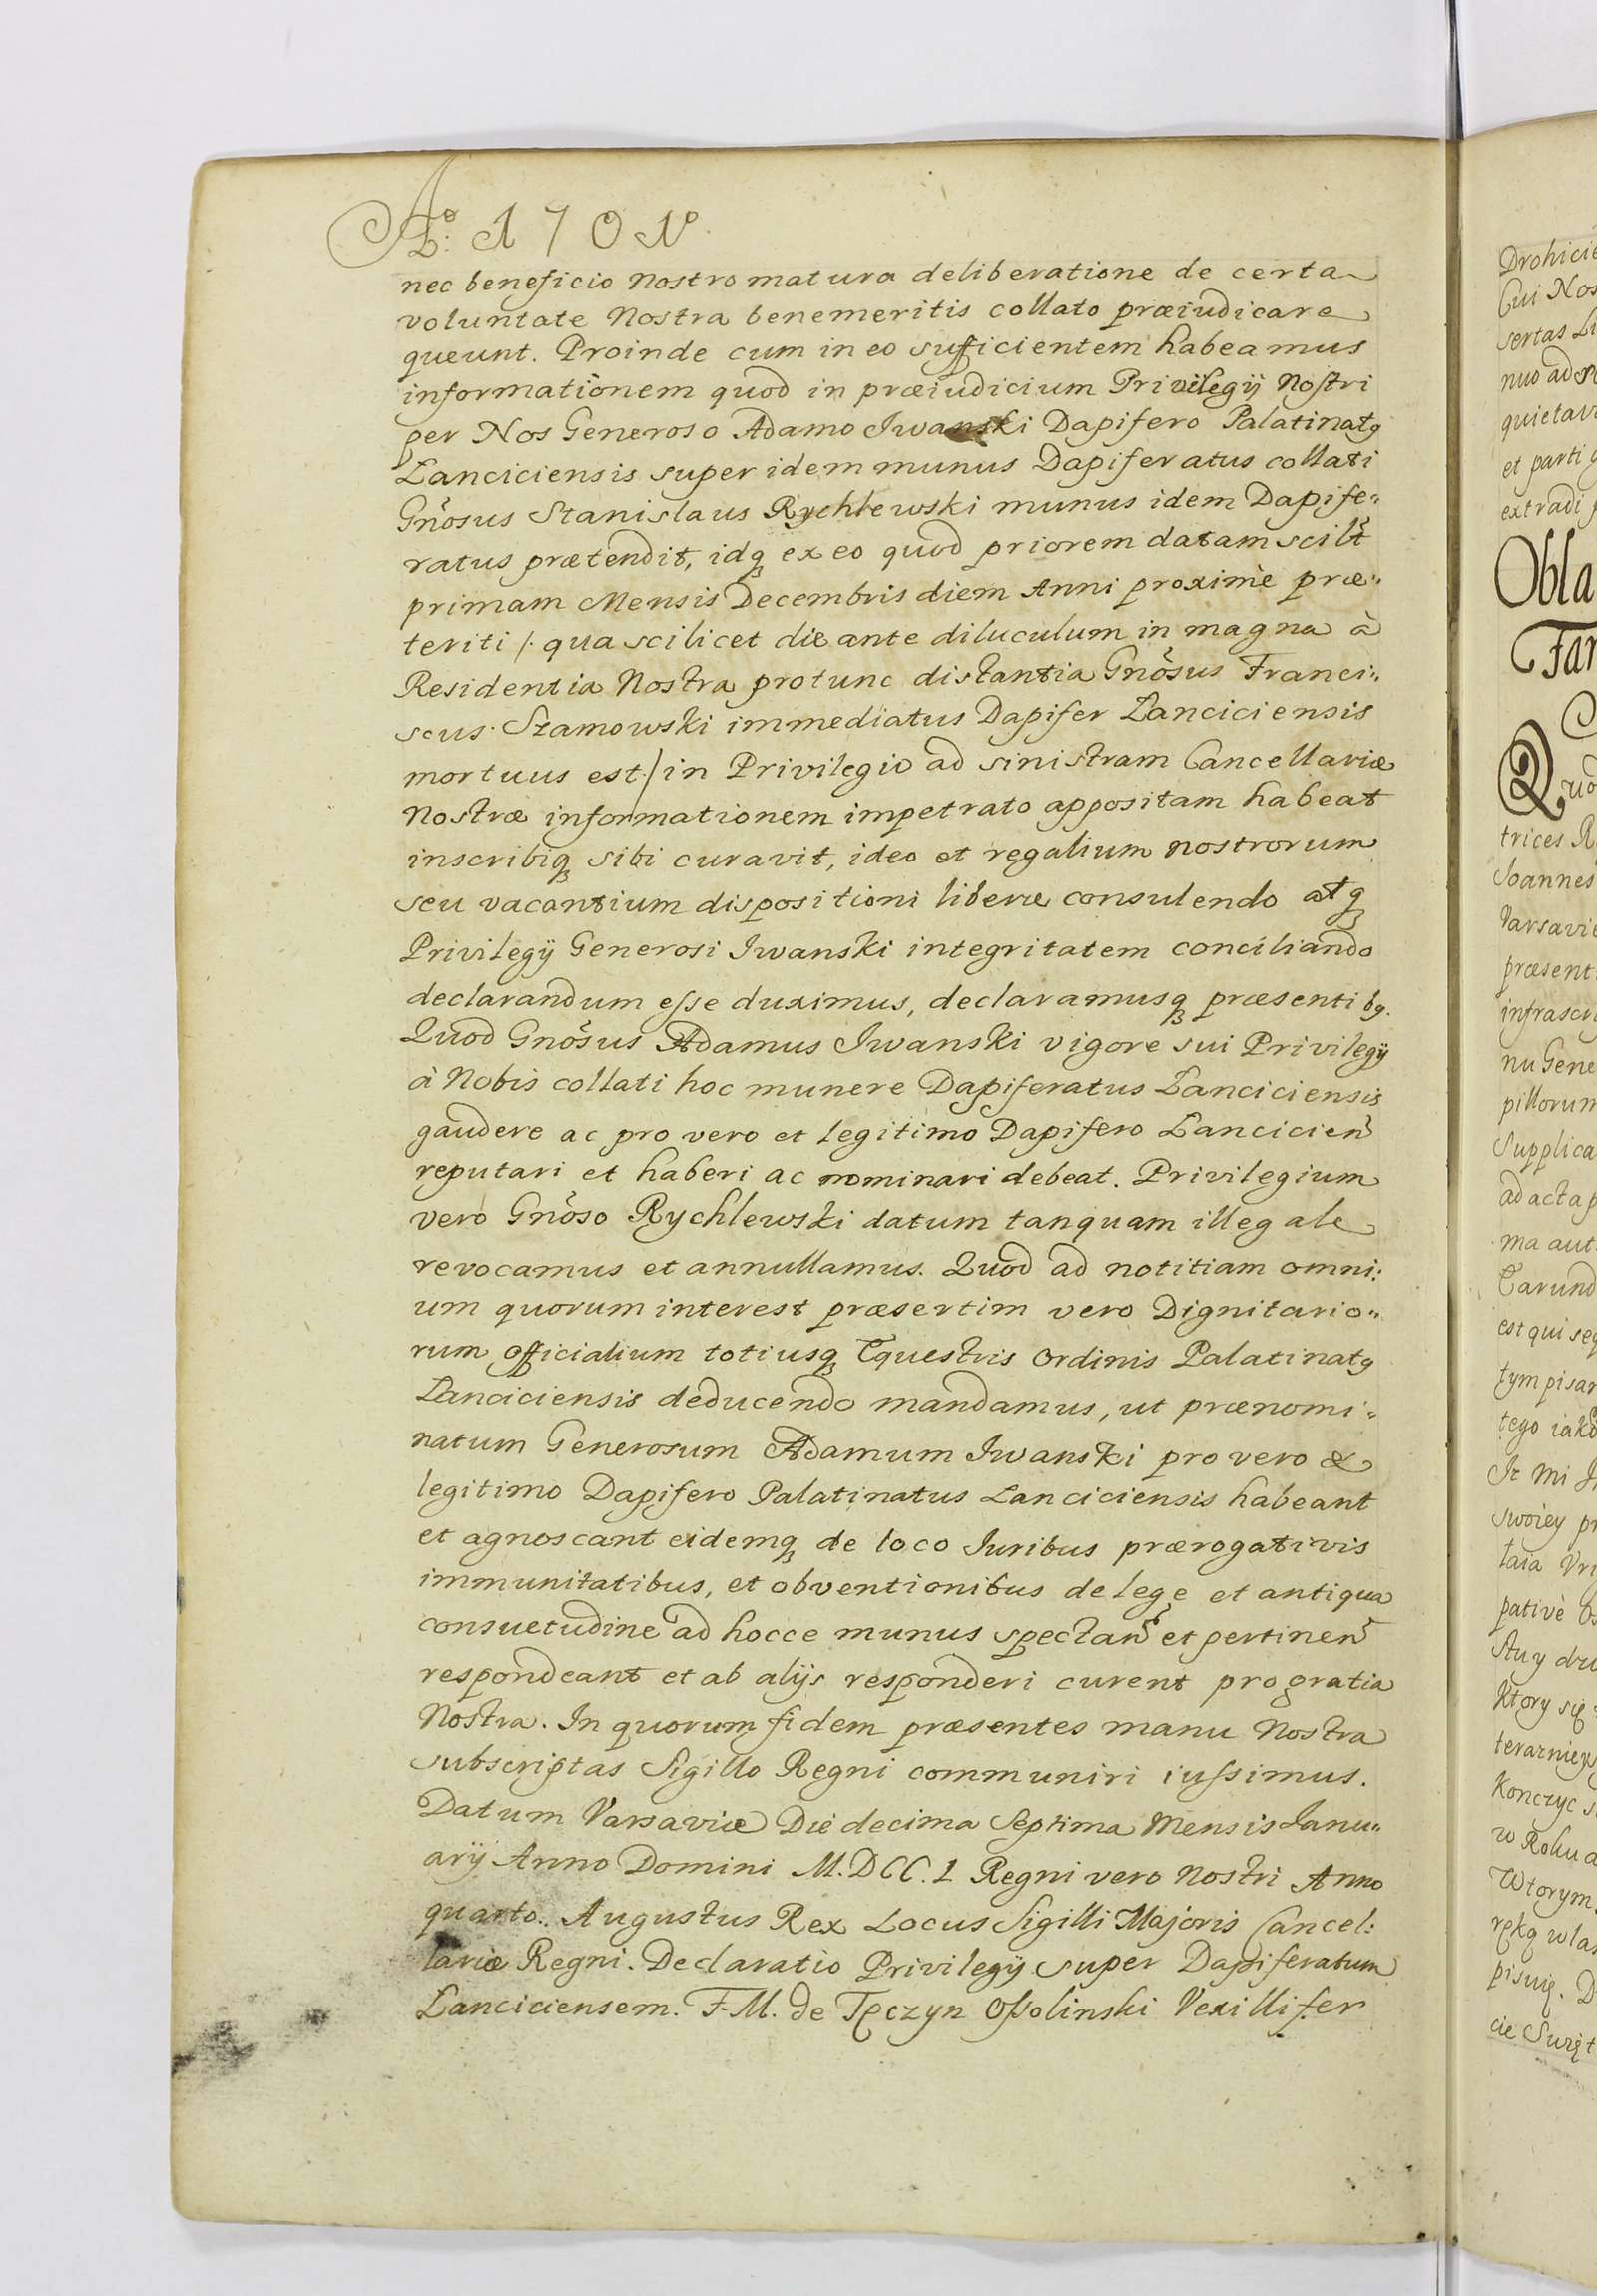 Aō D: 1701o.
nec beneficio Nostro matura deliberatione de certa
voluntate Nostra benemeritis collato præiudicare
queunt. Proinde cum in eo sufficientem habeamus
informationem quod in præiudicium Privilegij Nostri
per Nos Generoso Adamo Iwanski Dapifero Palatinatꝰ
Lanciciensis super idem munus Dapiferatus collati
Gnōsus Stanislaus Rychlewski munus idem Dapife:
ratus prætendit, idqꝫ ex eo quod priorem datam scilt̄
primam Mensis Decembris diem Anni proximè præ:
teriti /: qua scilicet die ante diluculum in magna à
Residentia Nostra protunc distantia Gnōsus Franci:
scus Szamowski immediatus Dapifer Lanciciensis
mortuus est :/ in Privilegio ad sinistram Cancellariæ
Nostræ informationem impetrato appositam habeat
inscribiqꝫ sibi curavit, ideo et regalium nostrorum
seu vacantium dispositioni liberæ consulendo atqꝫ
Privilegij Generosi Iwanski integritatem conciliando
declarandum esse duximus, declaramusqꝫ præsentibꝰ.
Quod Gnōsus Adamus Iwanski vigore sui Privilegij
à Nobis collati hoc munere Dapiferatus Lanciciensis
gaudere ac pro vero et legitimo Dapifero Lancicien̄
reputari et haberi ac nominari debeat. Privilegium
vero Gnōso Rychlewski datum tanquam illegale
revocamus et annullamus. Quod ad notitiam omni:
um quorum interest præsertim vero Dignitario:
rum officialium totiusqꝫ Equestris Ordinis Palatinatꝰ
Lanciciensis deducendo mandamus, ut prænomi:
natum Generosum Adamum Iwanski pro vero &
legitimo Dapifero Palatinatus Lanciciensis habeant
et agnoscant eidemqꝫ de loco Iuribus prærogativis
immunitatibus, et obventionibus de lege et antiqua
consuetudine ad hocce munus spectan̄ et pertinen̄
respondeant et ab alijs responderi curent pro gratia
Nostra. In quorum fidem præsentes manu Nostra
subscriptas Sigillo Regni communiri iussimus.
Datum Varsaviæ Die decima Septima Mensis Ianu:
arij Anno Domini M.DCC.1 Regni vero Nostri Anno
quarto. Augustus Rex Locus Sigilli Majoris Cancel:
lariæ Regni. Declaratio Privilegij super Dapiferatum
Lanciciensem. F.M. de Tęczyn Ossolinski Vexillifer
Drohicie
Cui Nos
sertas Li
nuo ad
et parti
extradi
Obla
Far
Quod
trices R
Joannes
Varsavie
præsent
infrascri
nu Gene
pillorum
Supplica
ad acta p
ma aut
Earund
est qui seq
tym pisan
tego iako
Iż Mi
swoiey pr
pativè
Ktory się
Konczyc
w Roku
Wtorym
ręką wlas
pisuię. D
cie Swięt